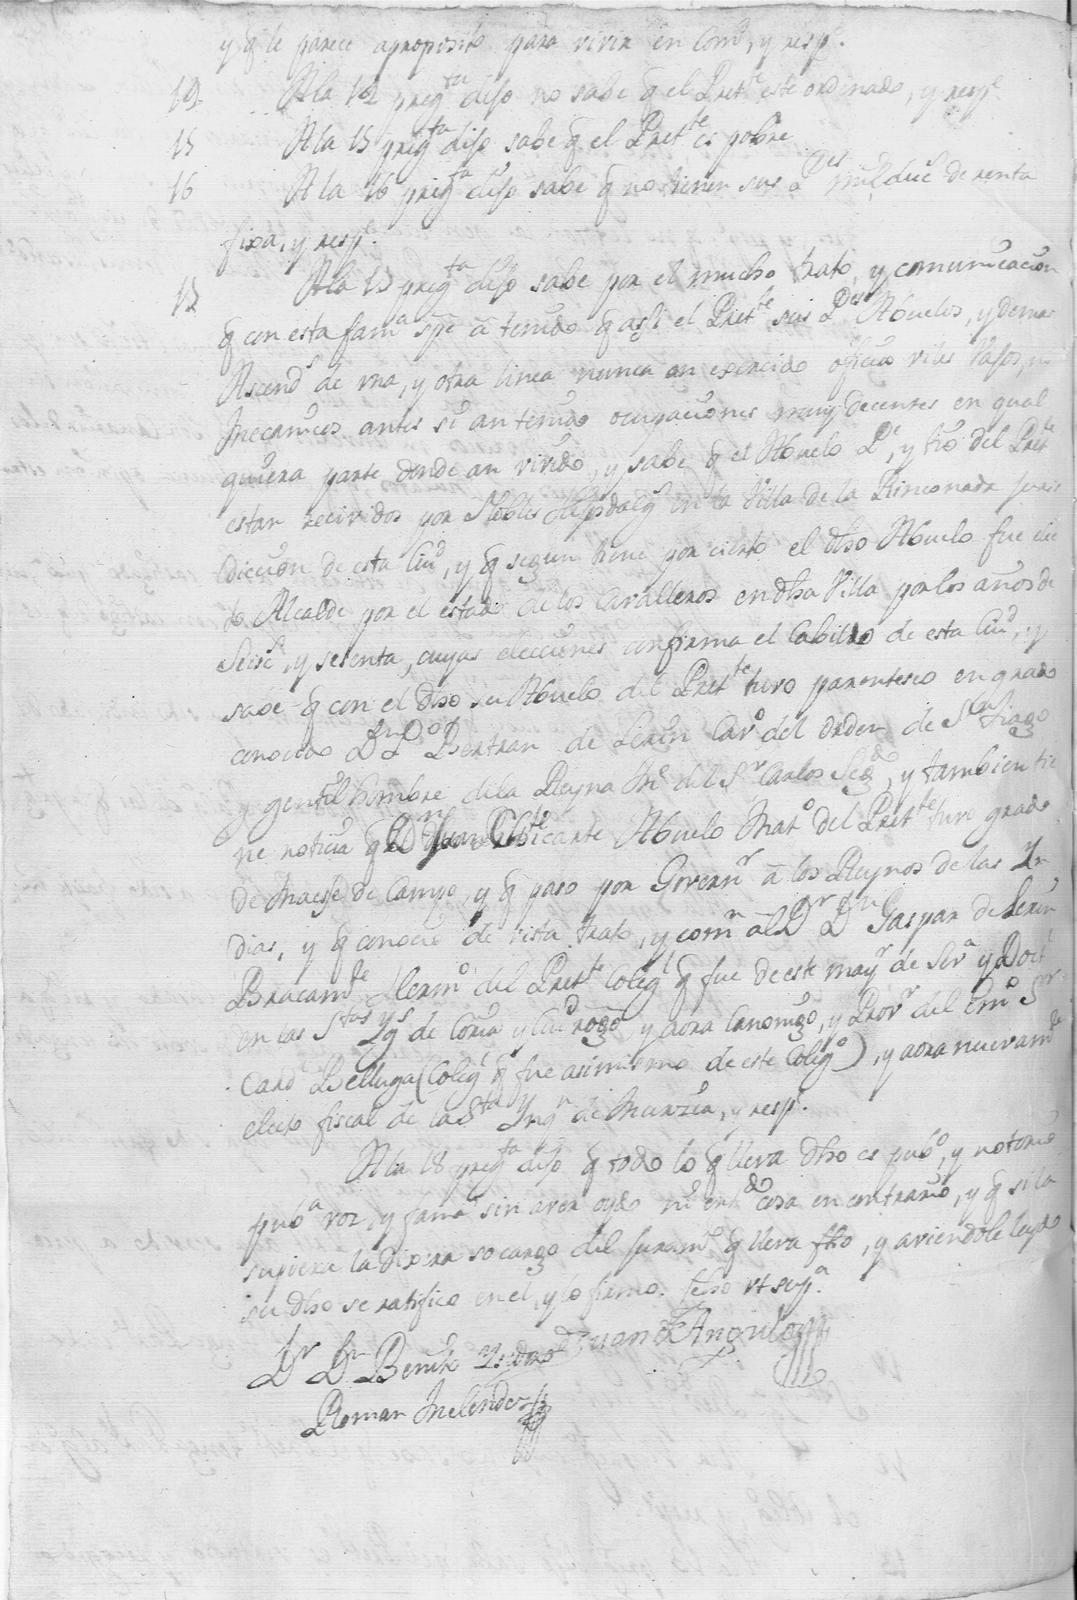 y q̃ le parece aproposito para vivir en Comᵈ, y respᵉ.
19. A la 14 pregᵗᵃ dijo no sabe q̃ el Pretᵉ este ordenado, y respᵉ
15 A la 15 pregᵗᵃ dijo sabe q̃ el Pretᵗᵉ es pobre
16 A la 16 pregᵗᵃ dijo sabe q̃ no tienen sus Pᵈʳᵉˢ mil ducˢ de renta
fixa, y respᵉ.
17 A la 17 pregᵗᵃ dijo sabe por el mucho trato, y comunicacion
q̃ con esta famᵃ spẽ a tenido q̃ asi el Pretᵗᵉ sus Pᵈʳᵉˢ Abuelos, y demas
Ascendˢ de una, y otra linea nunca an exercido oficio viles vajos, ni
Mecanicos antes si an tenido ocupaciones muy decentes en qual
quiera parte donde an vivido, y sabe q̃ el Abuelo Pᵉ, y tio del Pretᵗᵉ
estan recividos por Nobles Hijosdalgo en la Villa de la Rinconada juris
diccion de esta Ciuᵈ, y q̃ segun tiene por cierto el dho Abuelo fue elec
to Alcalde por el estado de los Cavalleros en dha Villa por los años de
Seiscˢ, y sesenta, cuyas elecciones confirma el Cabildo de esta Ciuᵈ, y
sabe q̃ con el dho su Abuelo del Pretᵗᵉ tuvo parentesco en grado
conocido Dⁿ Bertran de Lerin Cavº del orden de Sⁿ Tiago
y gentil hombre de la Reyna Mᵉ del Sʳ Carlos Segᵈᵒ, y tambien tie
ne noticia q̃ Dⁿ Juan Abuelo Matº del Pretᵗᵉ tuvo grado
de Maese de Campo, y q̃ paso por Governʳ a los Reynos de las Yn
dias, y q̃ conocio de vista trato, y comⁿ al Dʳ Dⁿ Gaspar de Lerin
Bracamᵗᵉ Hermº del Pretᵗᵉ Colegˡ q̃ fue de este mayʳ de Sevª y Doctˡ
en las Sᵗᵃˢ Ygˢ de Coria y Ciuᵈ Rodgº, y aora Canonigo, y Provʳ del Emº Sʳ
Cardˡ Belluga (Colegˡ q̃ fue asimismo de este Colegº), y aora nuevamᵗᵉ
electo fiscal de la Sᵗᵃ Ynqⁿ de Murzia, y respᵉ.
A la 18 pregᵗᵃ dijo q̃ todo lo q̃ lleva dho es pubº, y notorio
pubᵃ voz, y fama sin aver oydo ni entᵈᵒ cosa en contrario, y q̃ si la
supiera la dixera so cargo del juramᵗº q̃ lleva fho, y aviendole leydo
su dho se ratifico en el, y lo firmo. fecho ut supᵃ
Dʳ Dⁿ Benito Ysidoro Juan de Angulo
Roman Melendez